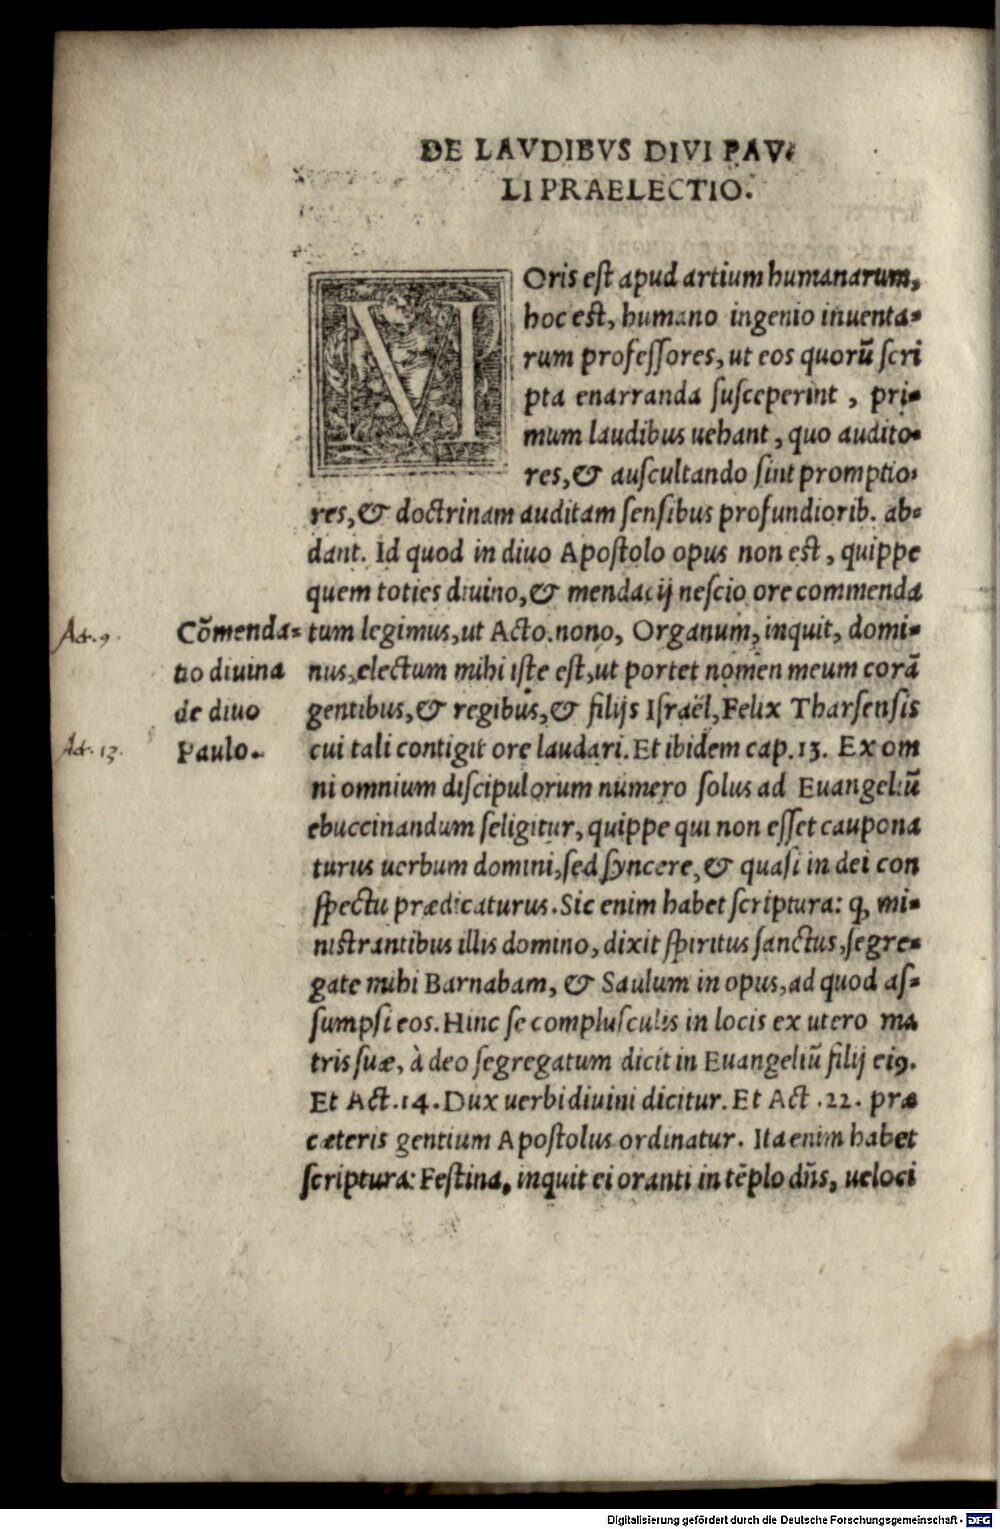 DE LAVDIBVS DIVI PAV⸗
LI PRAELECTIO.
MOris est apud artium humanarum,
hoc est, humano ingenio inuenta⸗
rum professores, ut eos quorũ scri
pta enarranda susceperint, pri⸗
mum laudibus uehant, quo audito⸗
res, & auscultando sint promptio⸗
res, & doctrinam auditam sensibus profundiorib. ab⸗
dant. Id quod in diuo Apostolo opus non est, quippe
quem toties diuino, & mendacij nescio ore commenda
tum legimus, ut Acto. nono, Organum, inquit, domi⸗
nus, electum mihi iste est, ut portet nomen meum corã
gentibus, & regibus, & filijs Israël, Felix Tharsensis
cui tali contigit ore laudari. Et ibidem cap. 13. Ex om
ni omnium discipulorum numero solus ad Euangeliũ
ebuccinandum seligitur, quippe qui non esset caupona
turus uerbum domini, sed syncere, & quasi in dei con
spectu prædicaturus. Sic enim habet scriptura: q, mi⸗
nistrantibus illis domino, dixit spiritus sanctus, segre⸗
gate mihi Barnabam, & Saulum in opus, ad quod as⸗
sumpsi eos. Hinc se complusculis in locis ex utero ma
tris suæ, à deo segregatum dicit in Euangeliũ filij eiꝰ.
Et Act. 14. Dux uerbi diuini dicitur. Et Act. 22. præ
cæteris gentium Apostolus ordinatur. Ita enim habet
scriptura: Festina, inquit ei oranti in tẽplo dñs, ueloci
Act. 9.
Cõmenda⸗
tio diuina
de diuo
Paulo.
Act. 13.
Digitalisierung gefördert durch die Deutsche Forschungsgemeinschaft - DFG